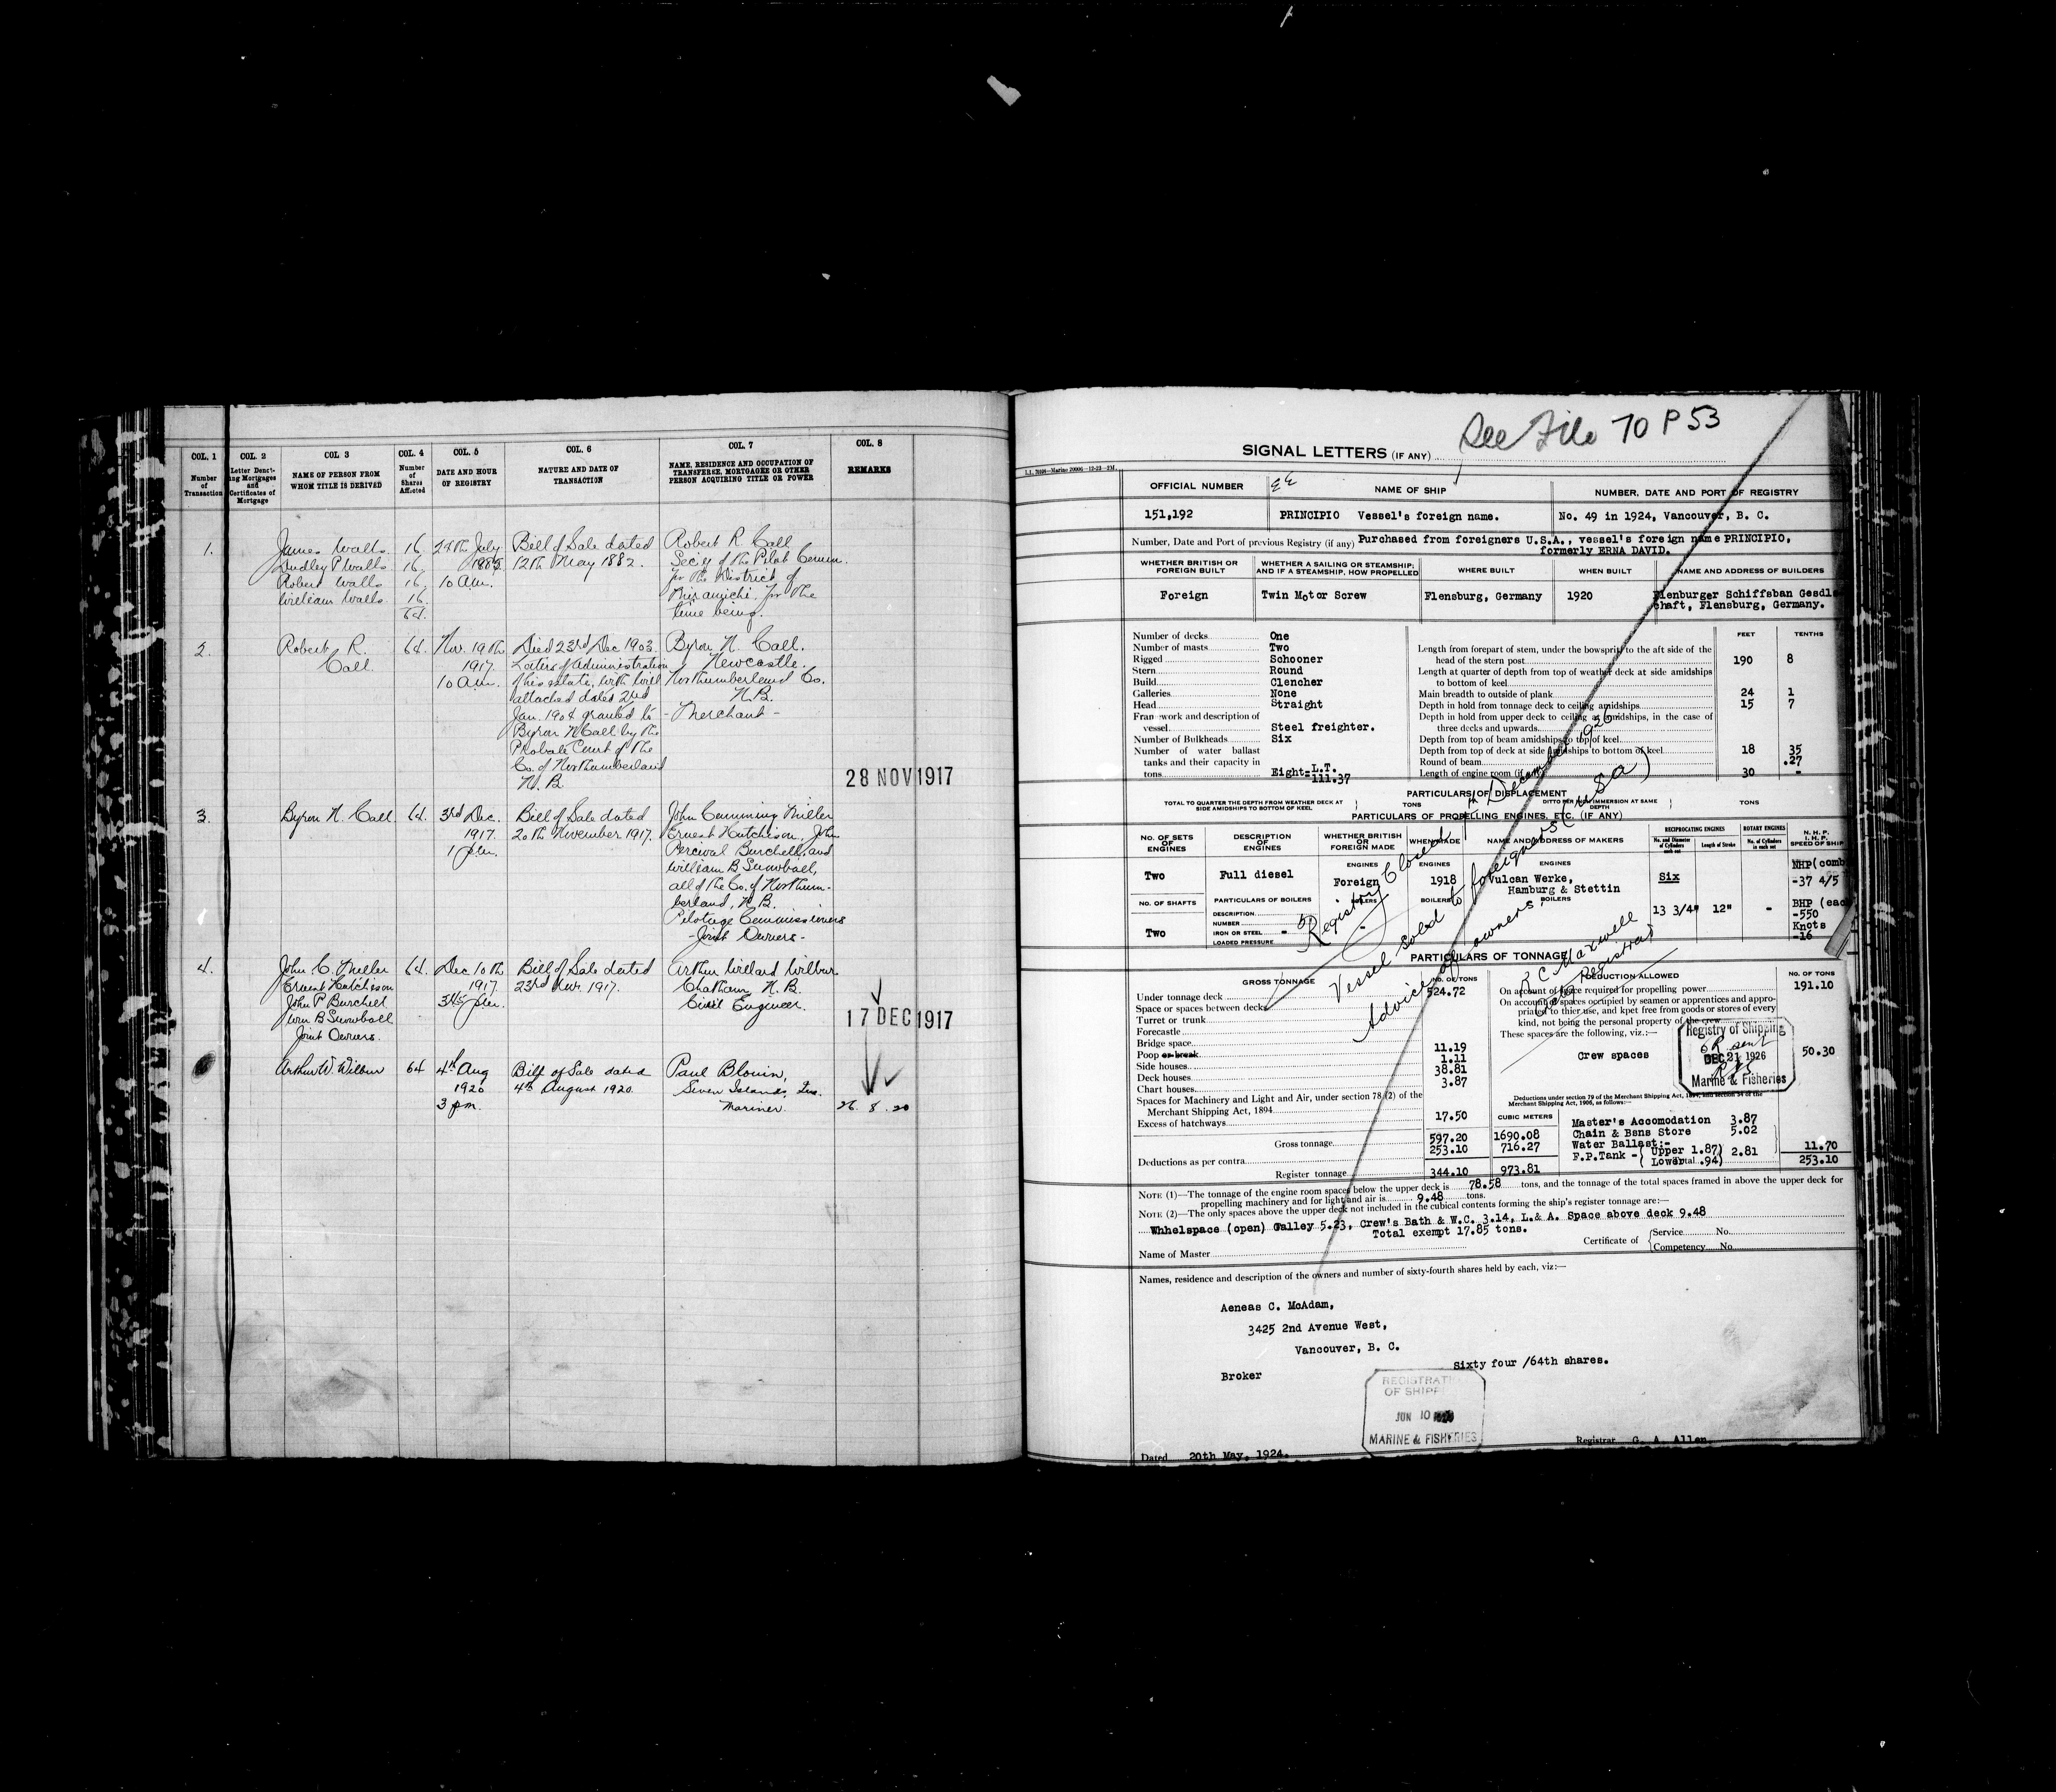 COL. 1
Number
of
Transaction
COL. 2
Letter Denot-
ing Mortgages
and
Certificates of
Mortgage
COL. 3
NAME OF PERSON FROM
WHOM TITLE IS DERIVED
COL. 4
Number
of
Shares
Affected
COL. 5
DATE AND HOUR
OF REGISTRY
COL. 6
NATURE AND DATE OF
TRANSACTION
COL. 7
NAME, RESIDENCE AND OCCUPATION OF
TRANSFEREE, MORTGAGEE OR OTHER
PERSON ACQUIRING TITLE OR POWER
COL. 8
REMARKS
1.
James Walls
Dudley P Walls
Robert Walls
William Walls
16
16
16
16
64
July
10 a.m.
Bill of Sale dated
12th May 1882.
Robert R. Call
Sec'y of the Pilot Comm.
for the District of
Miramichi for the
time being.
2.
Robert R.
Call
64
Nov. 19th
1917.
10 a.m.
Died 23rd Dec 1903.
Letters of Administration
of his estate, with will
attached dated 2nd
Jan. 1904 granted to
Byron N Call by the
Probate Court of the
Co. of Northumberland
N. B.
Byron N. Call.
Newcastle.
Northumberland Co.
N. B.
- Merchant -
28 NOV 1917
3.
Byron N. Call
64
3rd Dec.
1917.
1 p.m.
Bill of Sale dated
20th November 1917.
John Cumming Miller
Ernest Hutchison, John
Percival Burchell, and
William B Snowball,
all of the Co. of Northum-
berland, N. B.
Pilotage Commissioners
- Joint Owners -
4.
John C. Miller
Ernest Hutchison
John P Burchell
Wm B Snowball
Joint Owners.
64
Dec 10th
1917
3.45 p.m.
Bill of Sale dated
23rd Nov. 1917.
Arthur Willard Wilbur
Chatham N. B.
Civil Engineer.
17 DEC 1917
Arthur W. Wilbur
64
4th Aug
1920
3 pm.
Bill of Sale dated
4th August 1920.
Paul Blouin,
Seven Islands, Que.
Mariner.
26. 8. 20
See File 70 P 53
SIGNAL LETTERS (IF ANY)
OFFICIAL NUMBER
NAME OF SHIP
NUMBER, DATE AND PORT OF REGISTRY
151,192
PRINCIPIO Vessel's foreign name.
No. 49 in 1924, Vancouver, B. C.
Number, Date and Port of previous Registry (if any) Purchased from foreigners U.S.A., vessel's foreign name PRINCIPIO,
formerly ERNA DAVID.
WHETHER BRITISH OR
FOREIGN BUILT
WHETHER A SAILING OR STEAMSHIP;
AND IF A STEAMSHIP, HOW PROPELLED
WHERE BUILT
WHEN BUILT
NAME AND ADDRESS OF BUILDERS
Foreign
Twin Motor Screw
Flensburg, Germany
1920
Flenburger Schiffsban Gesdls
chaft, Flensburg, Germany.
FEET
TENTHS
Number of decks One
Number of masts Two
Rigged Schooner
Stern Round
Build Clencher
Galleries None
Head Straight
Framework and description of
vessel Steel freighter.
Number of Bulkheads Six
Number of water ballast
tanks and their capacity in
tons Eight=L.T.
111.37
Length from forepart of stem, under the bowsprit to the aft side of the
head of the stern post 190 8
Length at quarter of depth from top of weather deck at side amidships
to bottom of keel
Main breadth to outside of plank 24 1
Depth in hold from tonnage deck to ceiling amidships 15 7
Depth in hold from upper deck to ceiling at amidships, in the case of
three decks and upwards
Depth from top of beam amidships to top of keel
Depth from top of deck at side amidships to bottom of keel 18 35
Round of beam .27
Length of engine room (if any) 30 -
PARTICULARS OF DISPLACEMENT
TOTAL TO QUARTER THE DEPTH FROM WEATHER DECK AT
SIDE AMIDSHIPS TO BOTTOM OF KEEL
TONS
DITTO PER INCH IMMERSION AT SAME
DEPTH
TONS
PARTICULARS OF PROPELLING ENGINES, ETC. (IF ANY)
NO. OF SETS
OF
ENGINES
DESCRIPTION
OF
ENGINES
WHETHER BRITISH
OR
FOREIGN MADE
WHEN MADE
NAME AND ADDRESS OF MAKERS
RECIPROCATING ENGINES
ROTARY ENGINES
No. and Diameter
of Cylinders
each set
Length of Stroke
No. of Cylinders
in each set
N. H. P.
I. H. P.
SPEED OF SHIP
ENGINES
ENGINES
ENGINES
Two
Full diesel
Foreign
1918
Vulcan Werke,
Hamburg & Stettin
Six
NHP(comb
-37 4/5
NO. OF SHAFTS
PARTICULARS OF BOILERS
BOILERS
BOILERS
BOILERS
DESCRIPTION
NUMBER
IRON OR STEEL
LOADED PRESSURE
Two
13 3/4"
12"
-
BHP (each
-550
Knots
-16
Registry Closed 17 December 1926
Vessel sold to foreigners (USA)
Advice of owners.
R C Maxwell
Registrar
PARTICULARS OF TONNAGE
GROSS TONNAGE
NO. OF TONS
Under tonnage deck 524.72
Space or spaces between decks
Turret or trunk
Forecastle
Bridge space 11.19
Poop or break 1.11
Side houses 38.81
Deck houses 3.87
Chart houses
Spaces for Machinery and Light and Air, under section 78 (2) of the
Merchant Shipping Act, 1894 17.50
Excess of hatchways
CUBIC METERS
Gross tonnage 597.20 1690.08
Deductions as per contra 253.10 716.27
Register tonnage 344.10 973.81
DEDUCTION ALLOWED
NO. OF TONS
On account of space required for propelling power 191.10
On account of spaces occupied by seamen or apprentices and appro-
priated to thier use, and kpet free from goods or stores of every
kind, not being the personal property of the crew
These spaces are the following, viz.:—
Crew spaces 50.30
Registry of Shipping
DEC 21 1926
Marine & Fisheries
Deductions under section 79 of the Merchant Shipping Act, 1894, and section 54 of the
Merchant Shipping Act, 1906, as follows:—
Master's Accomodation 3.87
Chain & Bsns Store 5.02
Water Ballast:-
F.P.Tank - Upper 1.87) 2.81 11.70
Lower .94)
Total 253.10
NOTE (1)—The tonnage of the engine room spaces below the upper deck is 78.58 tons, and the tonnage of the total spaces framed in above the upper deck for
propelling machinery and for light and air is 9.48 tons.
NOTE (2)—The only spaces above the upper deck not included in the cubical contents forming the ship's register tonnage are:—
Whhelspace (open) Galley 5.23, Crew's Bath & W.C. 3.14, L.& A. Space above deck 9.48
Total exempt 17.85 tons.
Name of Master
Certificate of Service No.
Competency No.
Names, residence and description of the owners and number of sixty-fourth shares held by each, viz:—
Aeneas C. McAdam,
3425 2nd Avenue West,
Vancouver, B. C.
Broker
Sixty four /64th shares.
REGISTRATI
OF SHIPPI
JUN 10
MARINE & FISHERIES
Registrar G. A. Allen
Dated 20th May, 1924.